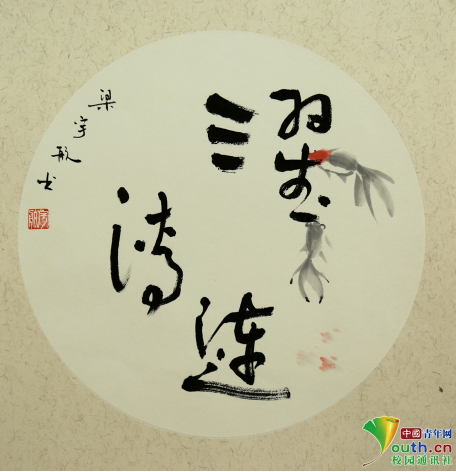 濯清涟
梁宇航书
中國青年网
Youth.cn
校园通讯社